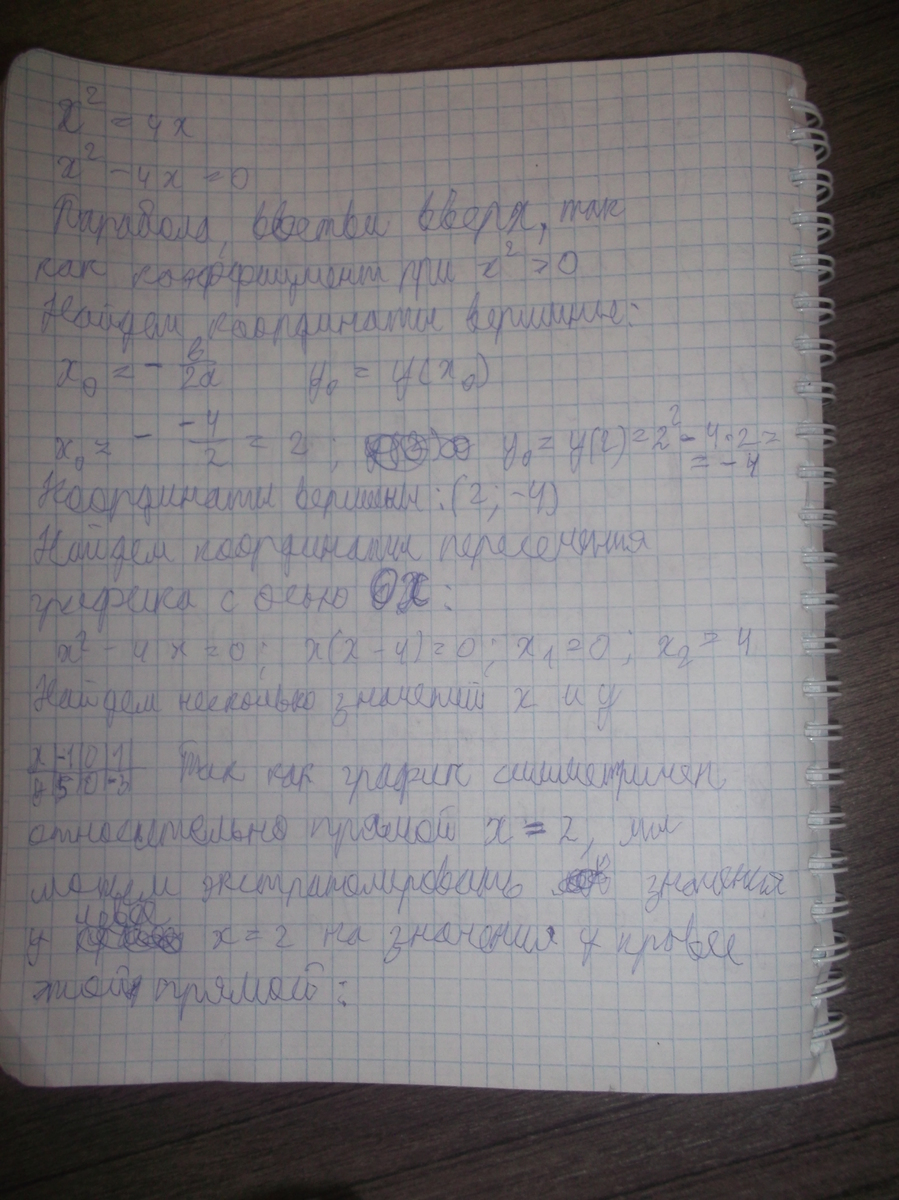 x² = 4x
x² - 4x = 0
Парабола, ветви вверх, так
как коэффициент при x² > 0
Найдем координаты вершины:
x₀ = - b/2a y₀ = y(x₀)
x₀ = - -4/2 = 2 ; y₀ = y(2) = 2² - 4·2 =
= -4
Координаты вершины: (2; -4)
Найдем координаты пересечения
графика с осью OX:
x² - 4x = 0; x(x - 4) = 0; x₁ = 0; x₂ = 4
Найдем несколько значений x и y
x | -1 | 0 | 1 Так как график симметричен
y | 5 | 0 | -3
относительно прямой x = 2, мы
можем экстраполировать значения
y левее x = 2 на значения y правее
этой прямой: